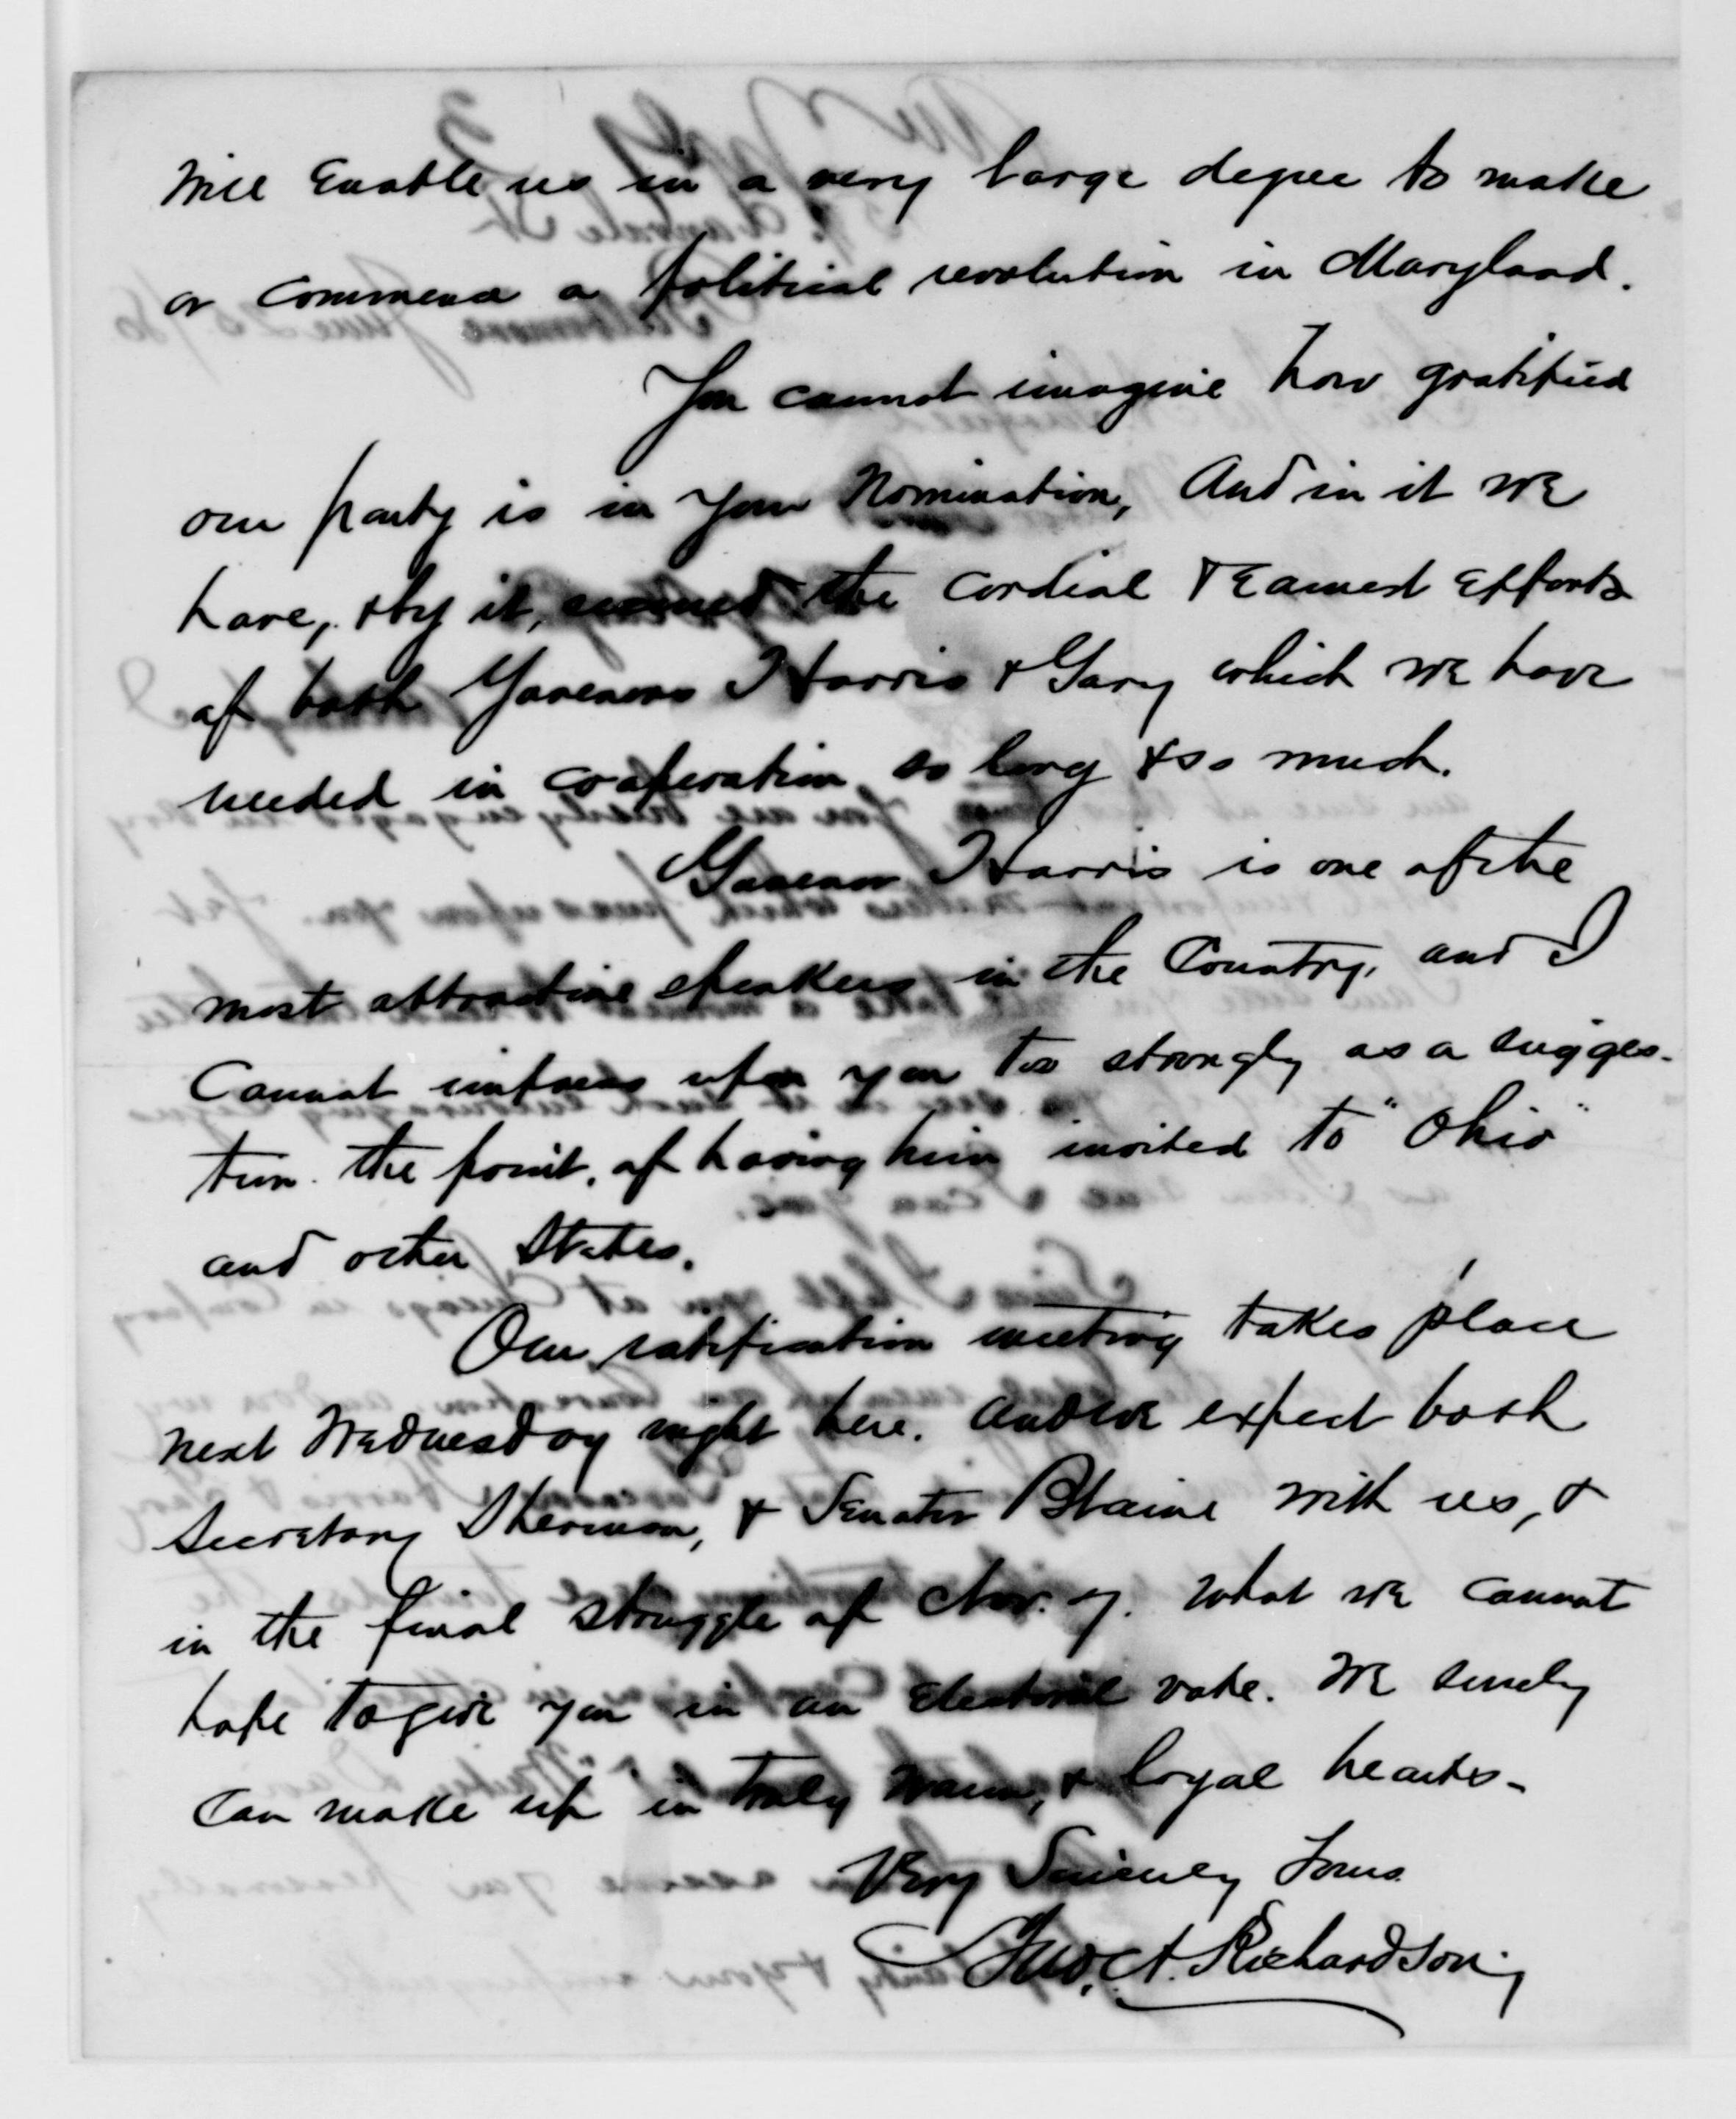 will Enable us in a very large degree to make
or commence a political revolution in Maryland.
You cannot imagine how gratified
our party is in your Nomination, And in it we
have, & by it, secured the cordial & Earnest Efforts
of both Governors Harris & Gary which we have
needed in cooperation, so long & so much.
Governor Harris is one of the
most attractive speakers in the Country, and I
Cannot impress upon you too strongly as a sugges-
tion. the point, of having him invited to "Ohio"
and other States.
Our ratification meeting takes place
next Wednesday night here. and we expect both
Secretary Sherman, & Senator Blaine with us, &
in the final struggle of Nov. What we cannot
hope to give you in an Electoral vote. We surely
Can make up in truly warm, & loyal hearts-
Very Sincerely Yours
Jno. A. Richardson